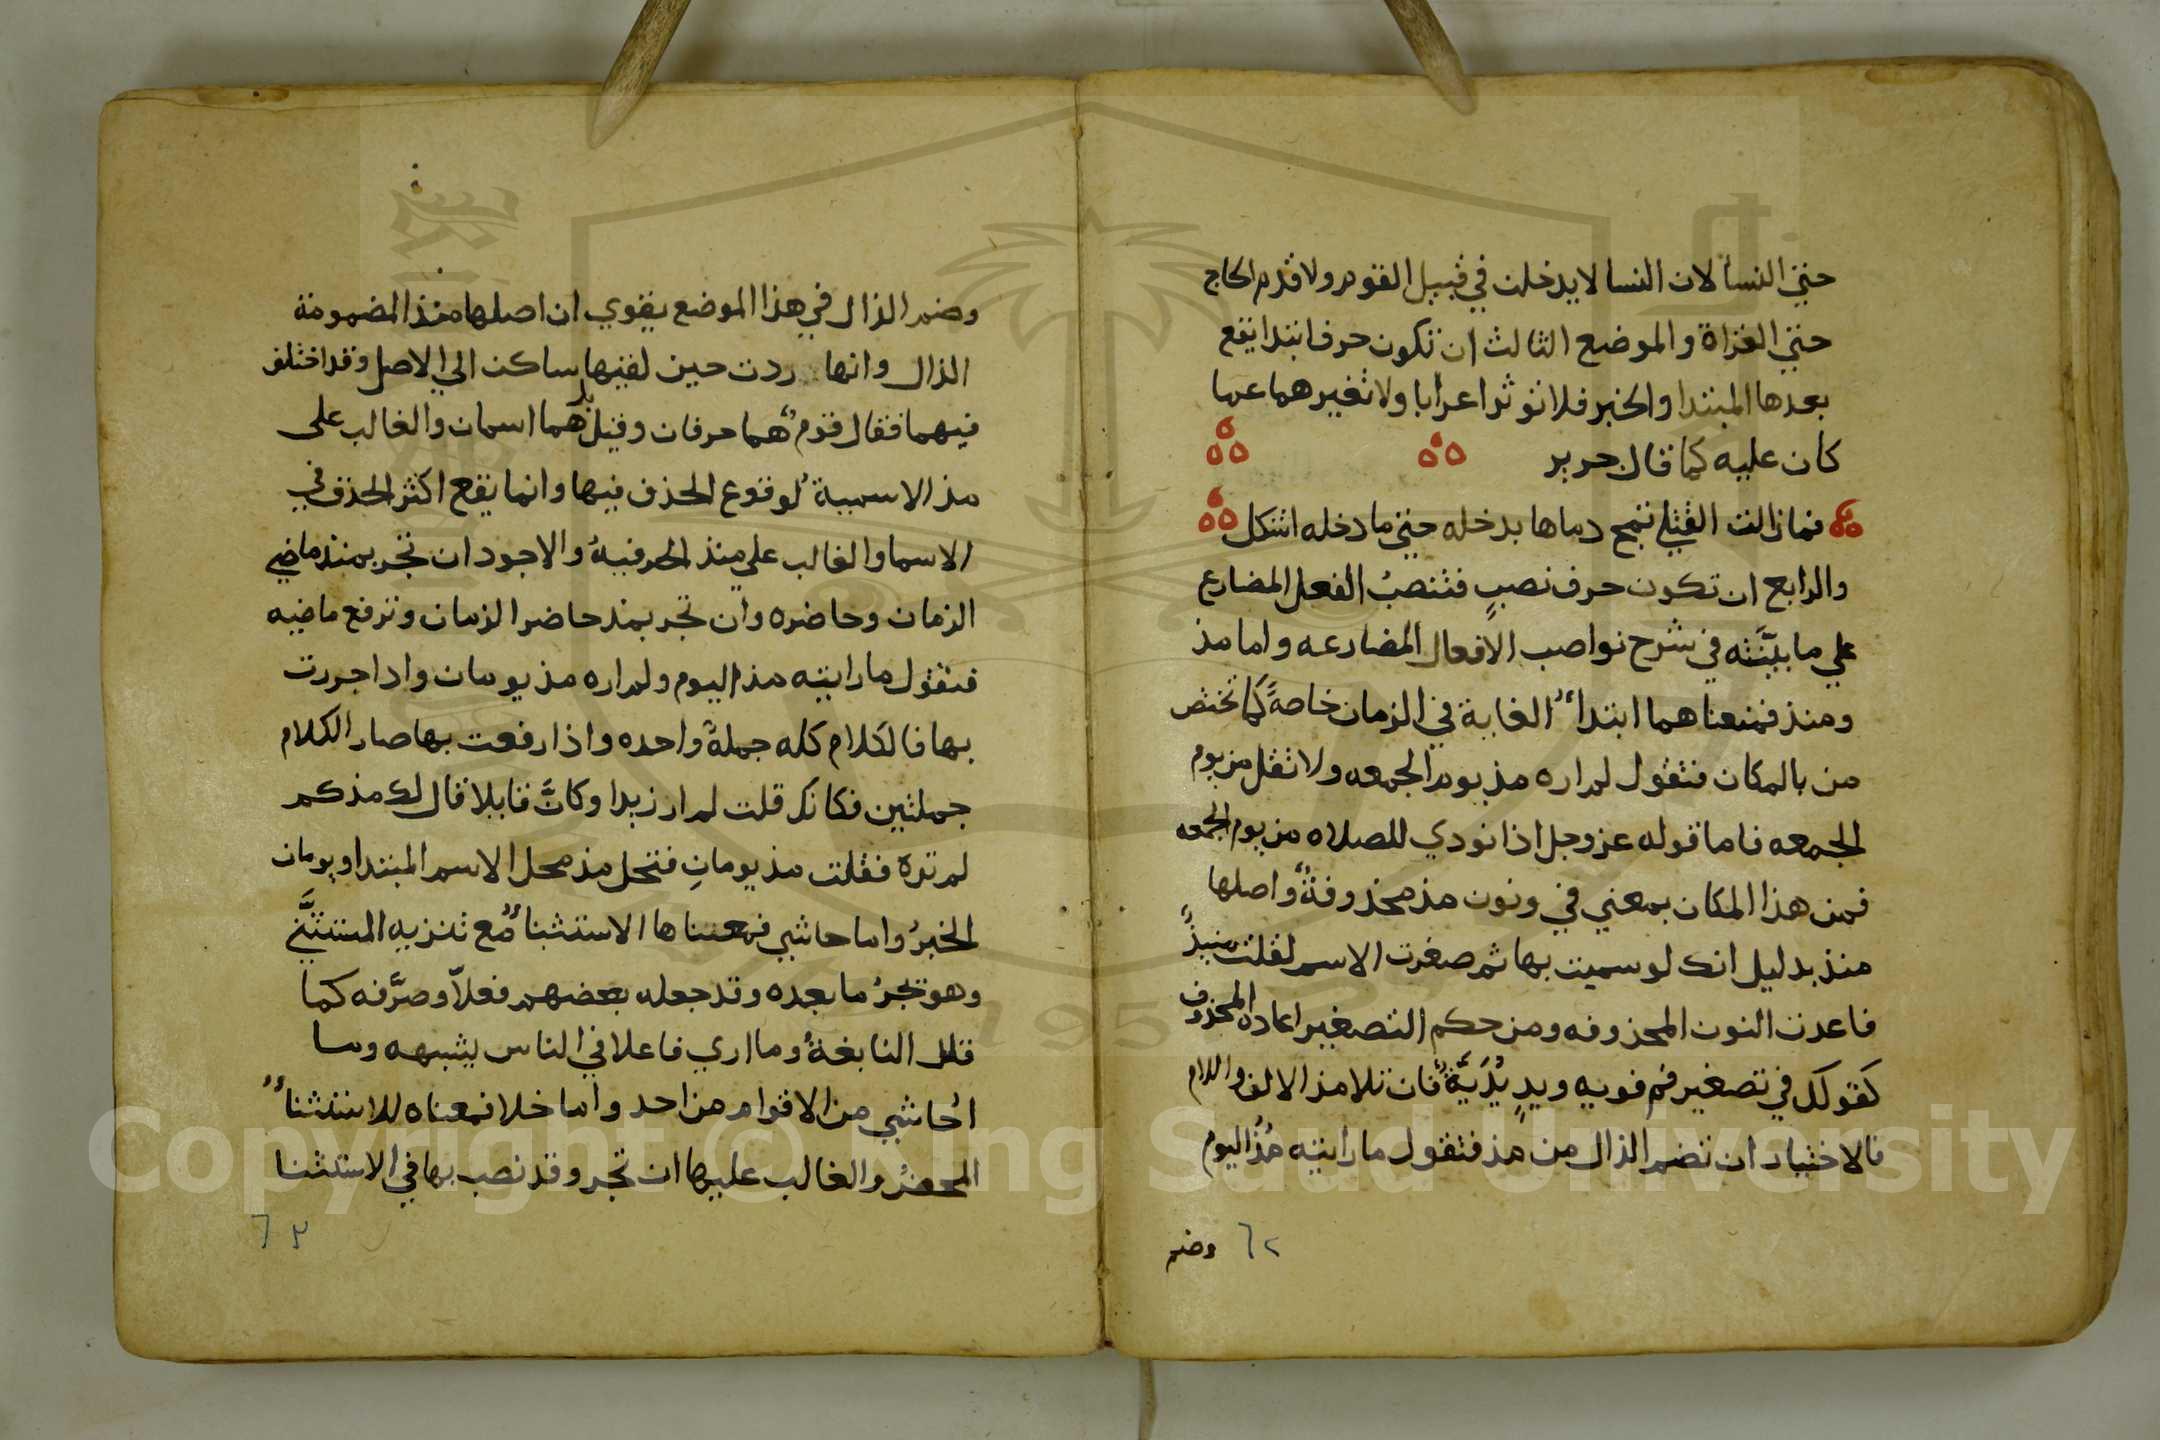 حتي النسأ لان النسا لا يدخلن في قبيل القوم ولا قدم الحاج
حتي الغزاة والموضع الثالث ان تكون حرف ابتدا يقع
بعدها المبتدا والخبر فلا توثر اعرابا ولا تغيرهما عما
كان عليه كما قال جرير
فما زالت القتلي تمج دماها بدخله حتي ما دخله اشكل
والرابع ان تكون حرف نصبٍ فتنصبُ الفعل المضارع
علي ما بيَّنَته في شرح نواصب الافعال المضارعه واما مذ
ومنذ فمعناهما ابتداءُ الغاية في الزمان خاصةً كما تختص
من بالمكان فتقول لم اره مذ يوم الجمعه ولا تقل من يوم
الجمعه فاما قوله عز وجل اذا نودي للصلاه من يوم الجمعه
فمن هذا المكان بمعني في ونون مذ محذوفةٌ واصلها
منذ بدليل انك لو سميت بها ثم صغرت الاسم لقلت منيذٌ
فاعدت النون المحذوفه ومن حكم التصغير اعادة المحذوف
كقولك في تصغير فم فويه ويدٍ يُدَيَّةٌ فان تلا مذ الالف واللام
فالاختيار ان تضم الذال من مذ فتقول ما رايته مُذُ اليوم
وضم
٦٢
وضم الذال في هذا الموضع يقوي ان اصلها منذ المضمومة
الذال وانها ردت حين لقيها ساكن الي الاصل وقد اختلف
فيهما فقال قومٌ هما حرفان وقيل بل هما اسمان والغالب على
مذ الاسمية لوقوع الحذف فيها وانما يقع اكثر الحذف في
الاسما والغالب علي منذ الحرفيه والاجود ان تجر بمنذ ماضي
الزمان وحاضره وان تجر بمذ حاضر الزمان وترفع ماضيه
فتقول ما رايته مذ اليوم ولم اره مذ يومان واذا جررت
بها فالكلام كله جملةٌ واحده واذا رفعت بها صار الكلام
جملتين فكانك قلت لم ار زيدا وكانَّ قايلا قال لك مذ كم
لم تره فقلت مذ يومانِ فتحل مذ محل الاسم المبتدا ويومان
الخبرُ واما حاشي فمعناها الاستثناءُ مع تنزيه المستثنَّي
وهو تجرُ ما بعده وقد جعله بعضهم فعلاً وصرَّفه كما
قال النابغةُ وما اري فاعلا في الناس يشبهه وما
اُحاشي من الاقوام من احد واما خلا فمعناه للاستثناءُ
المحضُ والغالب عليها ان تجر وقد نصب بها في الاستثنا
٦٣
Copyright © King Saud University
1957